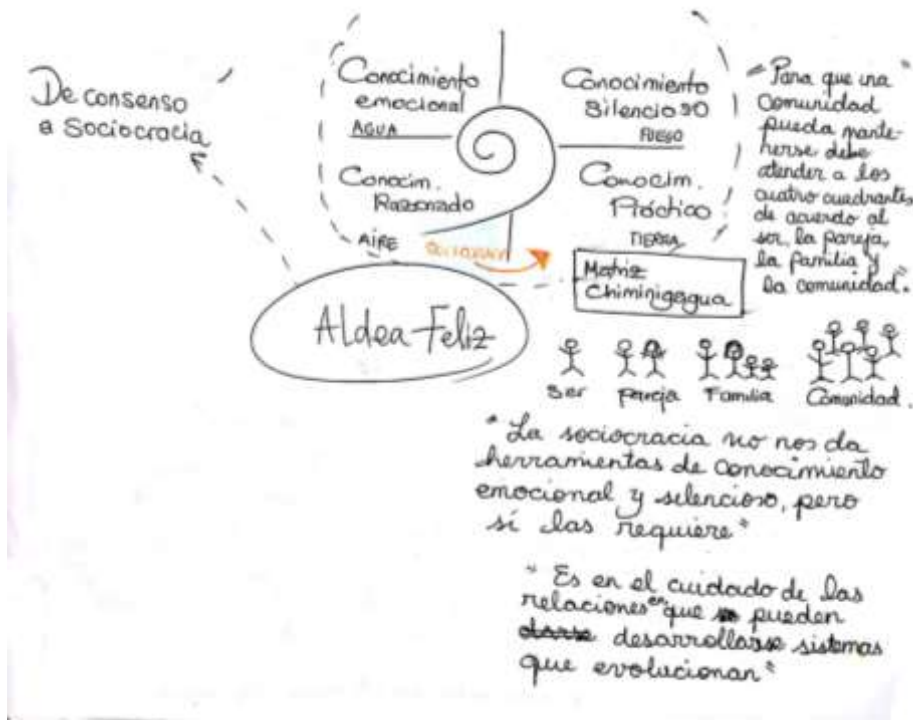 De consenso
a Sociocracia
Conocimiento
emocional
AGUA
Conocimiento
Silencioso
FUEGO
Conocim.
Razonado
AIRE
Conocim.
Práctico
TIERRA
Matriz
Chiminigagua
Aldea Feliz
"Para que una
Comunidad
pueda mante-
nerse debe
atender a los
cuatro cuadrantes
de acuerdo al
ser, la pareja,
la familia y
la comunidad".
Ser
pareja
Familia
Comunidad.
"La sociocracia no nos da
herramientas de conocimiento
emocional y silencioso, pero
sí las requiere"
"Es en el cuidado de las
relaciones en que pueden
darse desarrollarse sistemas
que evolucionan"